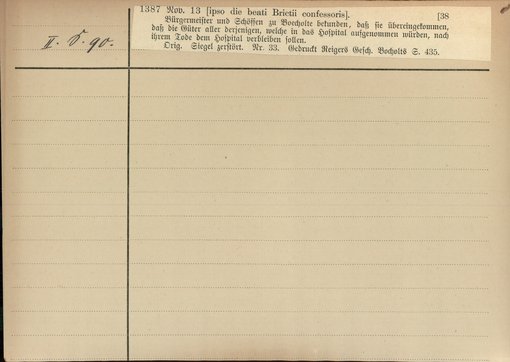 II. S. 90.
1387 Nov. 13 [ipso die beati Brictii confessoris]. [38
Bürgermeister und Schöffen zu Boecholte bekunden, daß sie übereingekommen,
daß die Güter aller derjenigen, welche in das Hospital aufgenommen würden, nach
ihrem Tode dem Hospital verbleiben sollen.
Orig. Siegel zerstört. Nr. 33. Gedruckt Reigers Gesch. Bocholts S. 435.